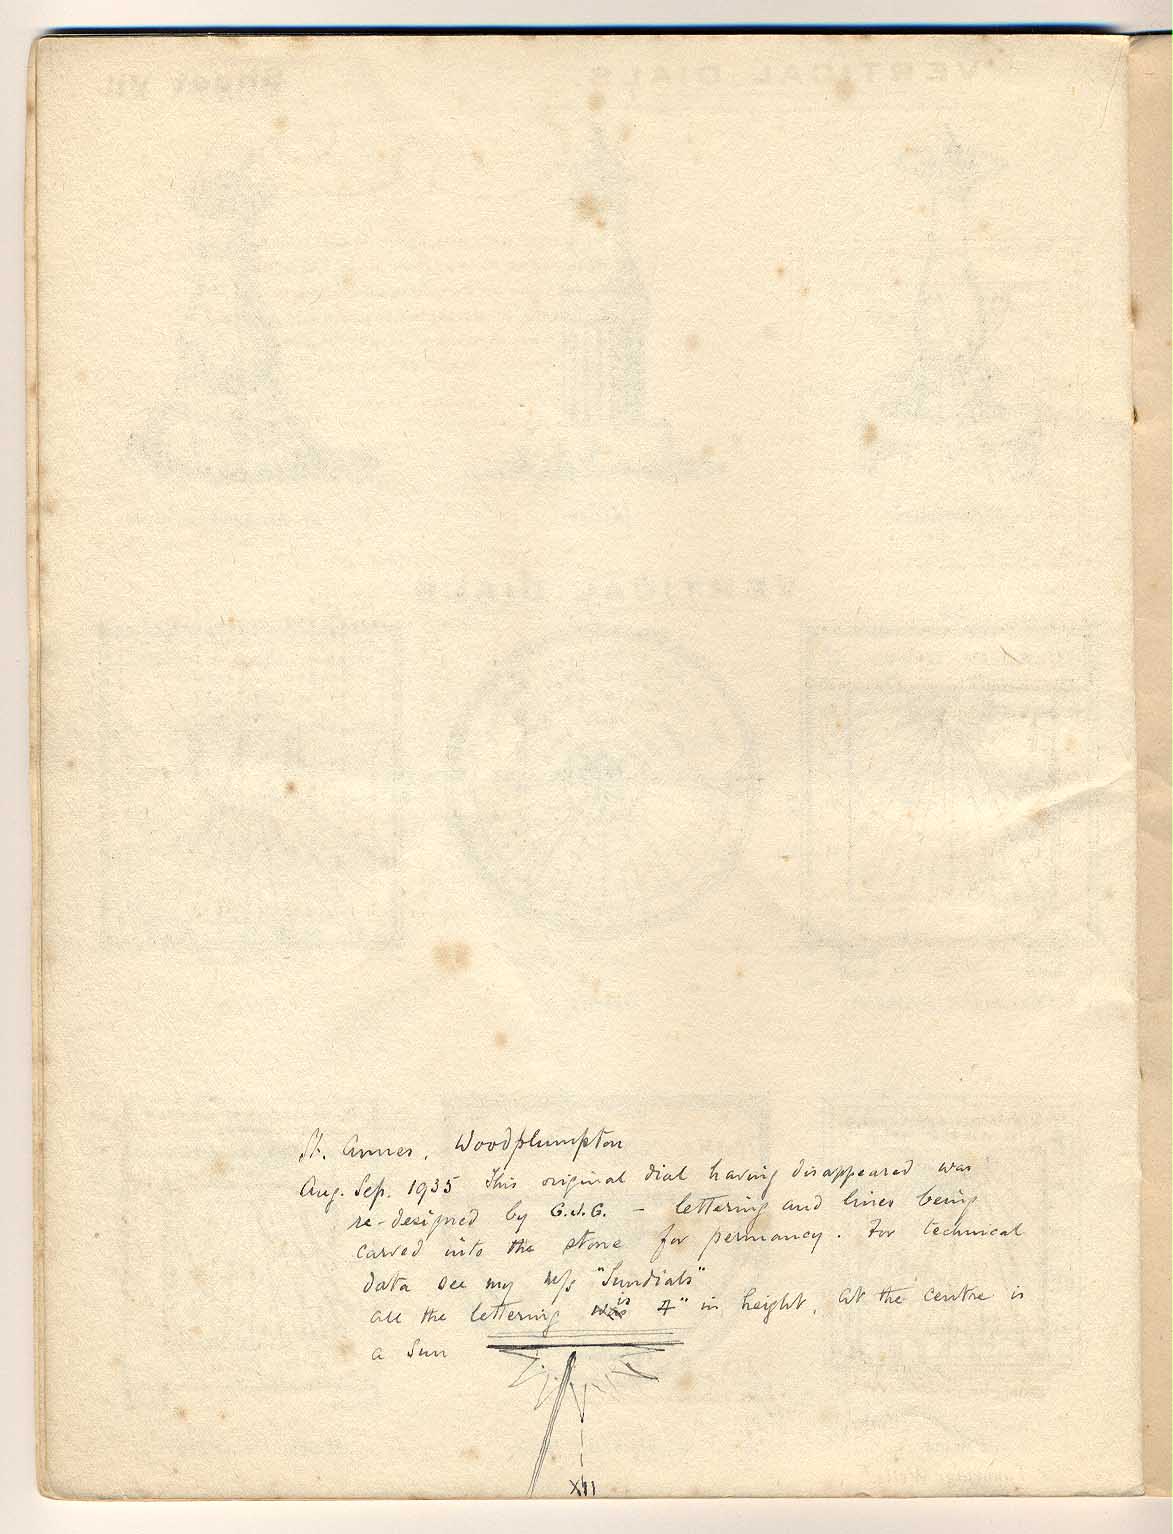 St. Annes, Woodplumpton
Aug. Sep. 1935 This original dial having disappeared was
re-designed by G.J.G. – lettering and lines being
carved into the stone for permancy. For technical
data see my m/s "Sundials"
all the lettering was is 4" in height, at the centre is
a Sun
XII
VERTICAL DIALS
Sheet VII
VERTICAL DIALS